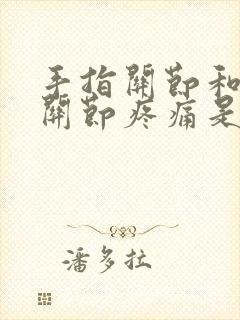 手指關節和
關節疼痛是
潘多拉